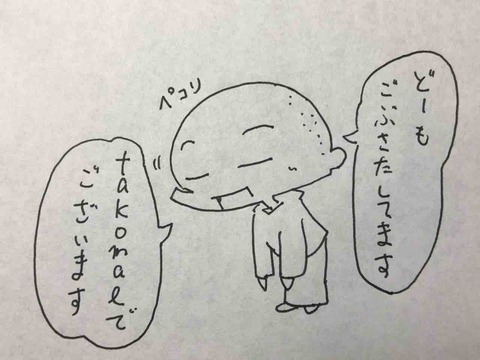 どーも
ごぶさたしてます
ペコリ
takomaeで
ございます